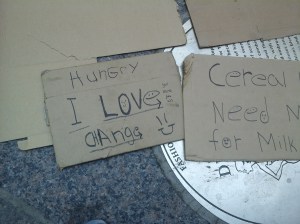 Hungry
I LOVe
change
Cereal
Need
for Milk
FASHION